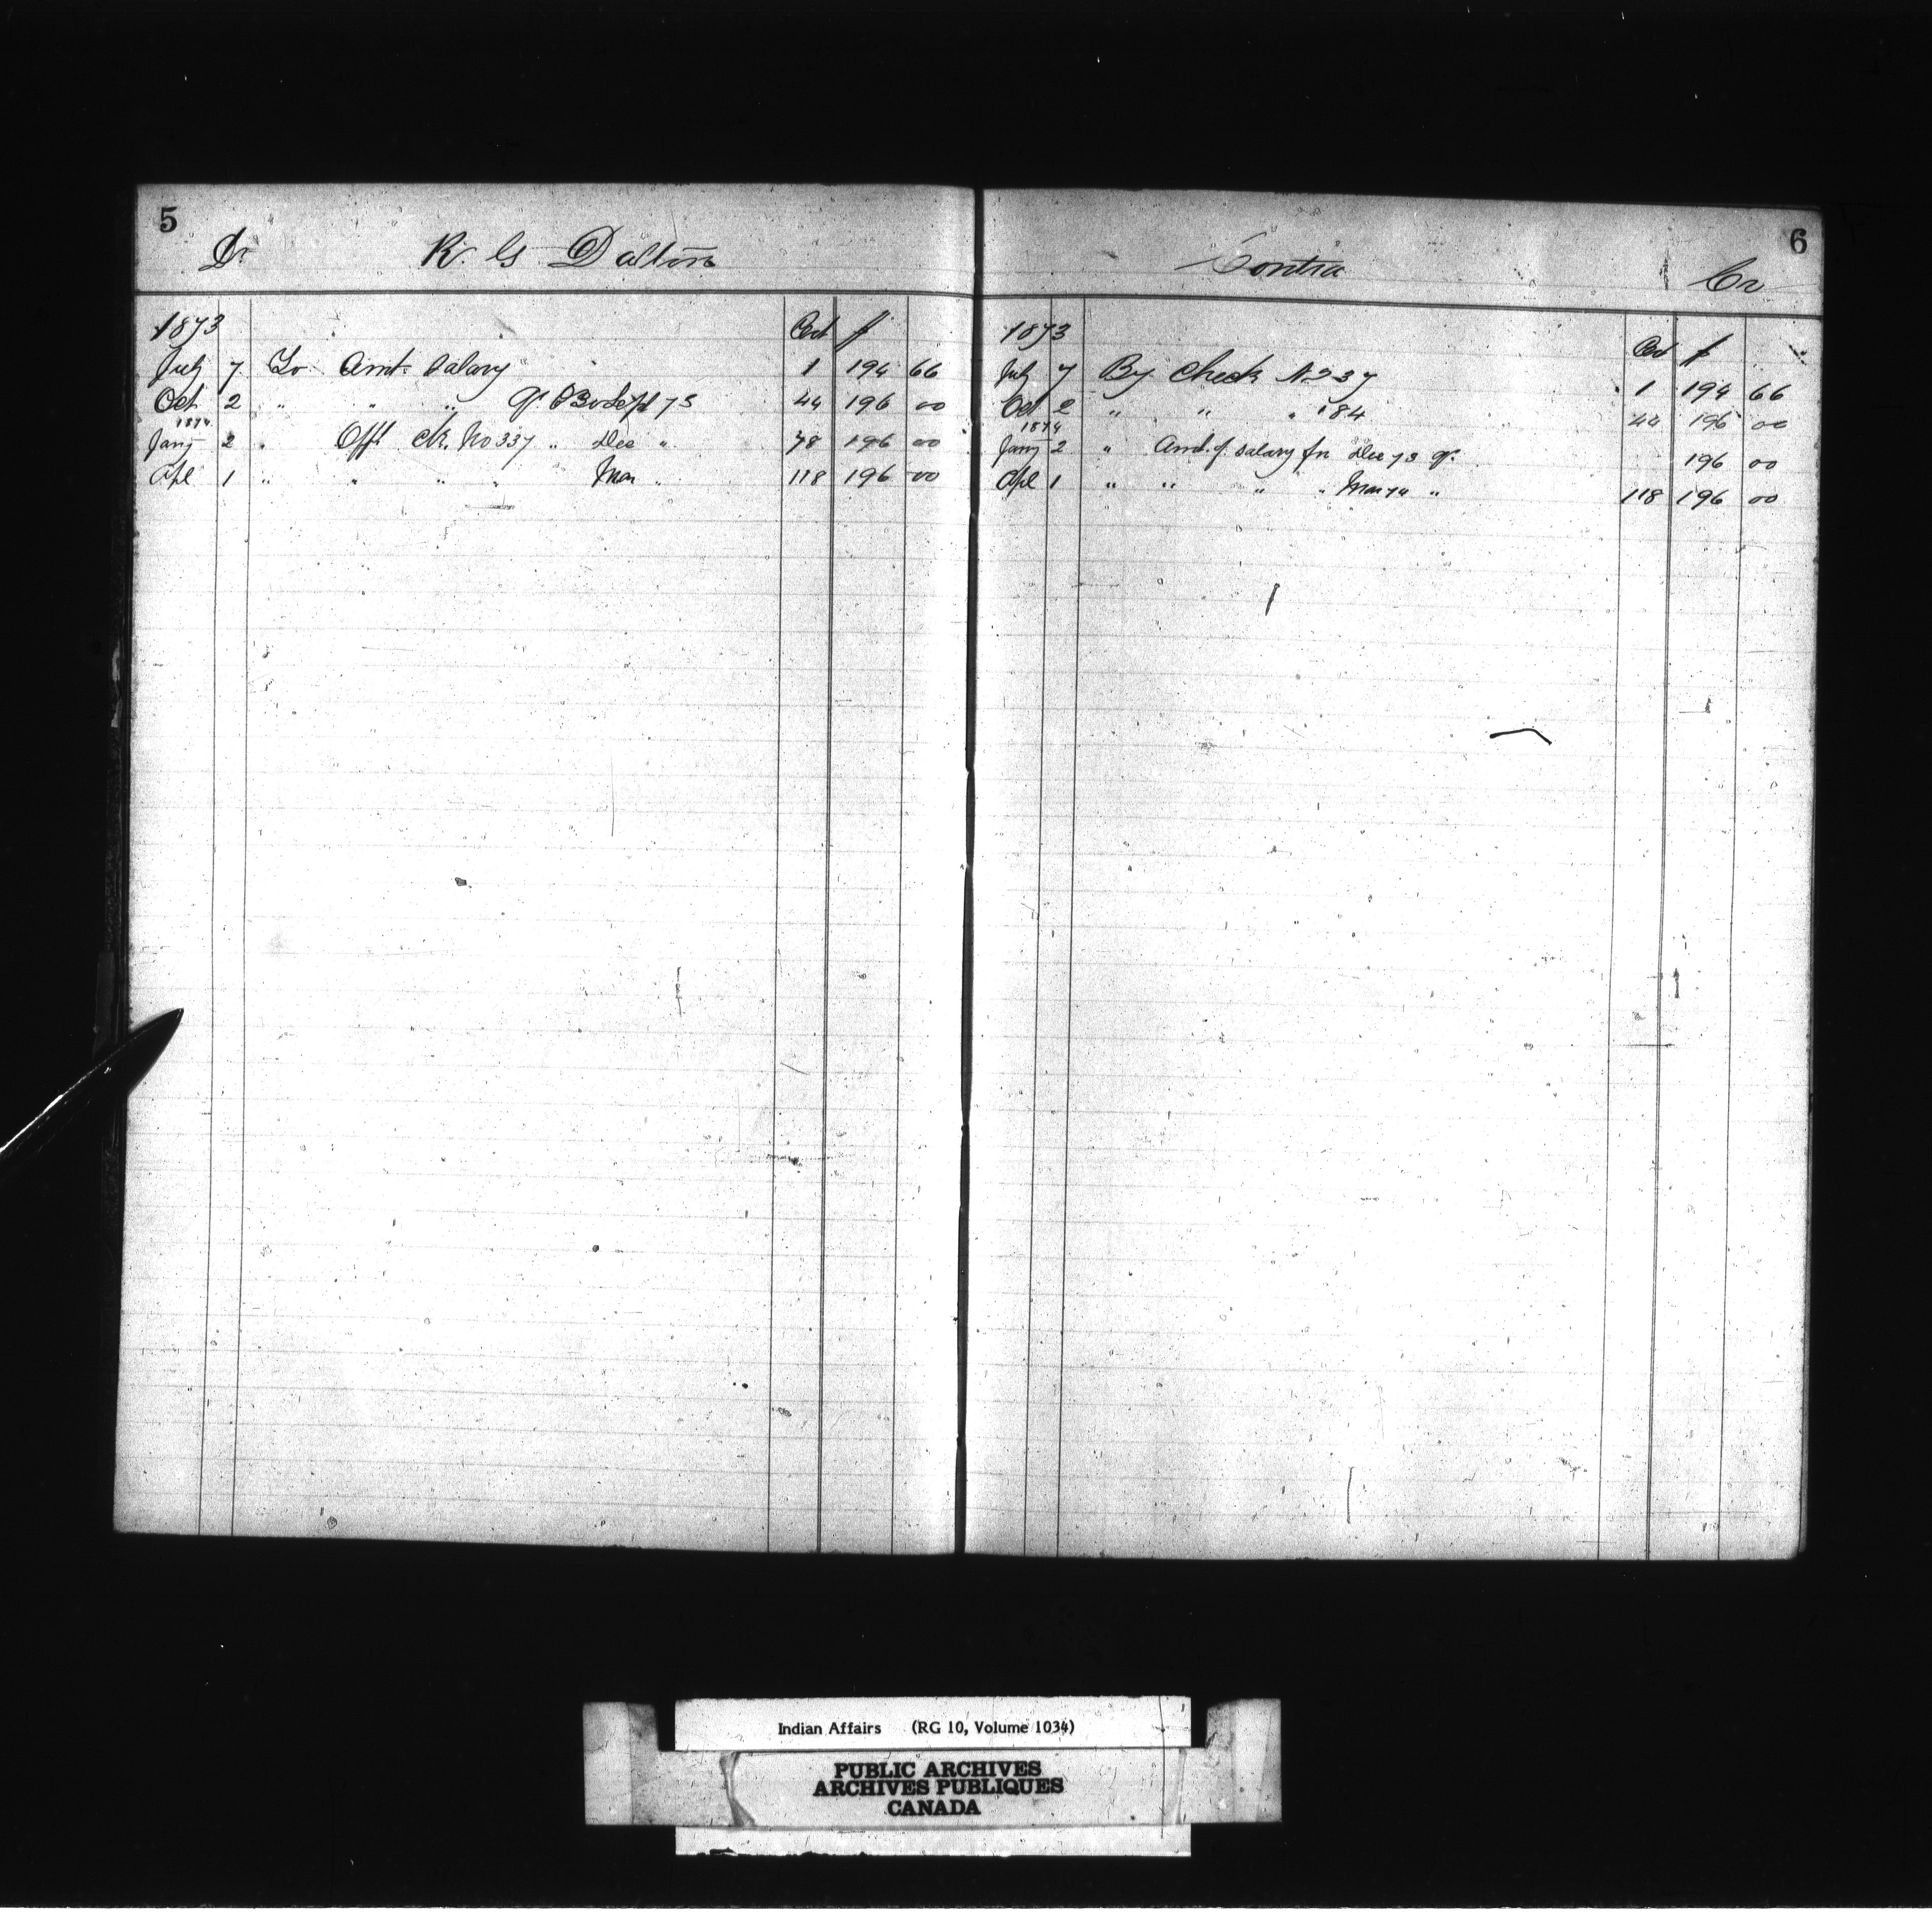 5
Dr R. G Dalton
1873 Cct $
July 7 To Amt Salary 1 194 66
Oct 2 " " " Qr 30 Sept 73 44 196 00
1874
Jany 2 " Offl Ck. No 337 " Dec " 78 196 00
Apl 1 " " " " Mar " 118 196 00
6
Contra Cr
1873 $
July 7 By Check No 37 1 194 66
Oct 2 " " " 184 44 196 00
1874
Jany 2 " Amt. of Salary fr Dec 73 qr. 196 00
Apl 1 " " " " Mar 74 " 118 196 00
Indian Affairs (RG 10, Volume 1034)
PUBLIC ARCHIVES
ARCHIVES PUBLIQUES
CANADA